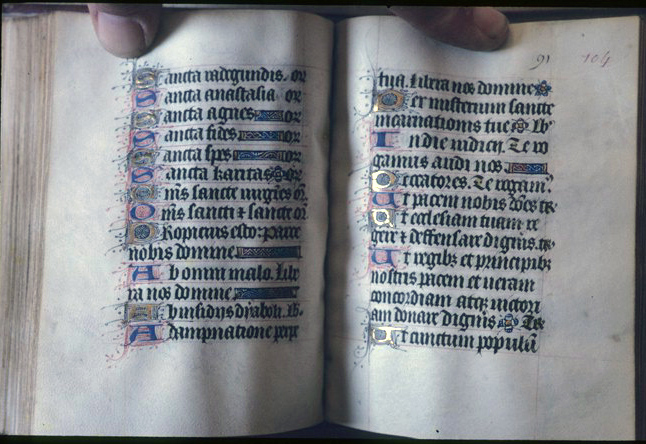 Sancta radegundis. or
Sancta anastasia or
Sancta agnes or
Sancta fides or
Sancta spes or
Sancta karitas or
Oms sancte uirgies or
Oms sancti & sancte or
Propicius esto: parce
nobis domine
Ab omni malo. Libe
ra nos domine
Ab insidijs dyaboli. lb.
A dampnatione perpe
91 104
tua. Libera nos domine
Per misterium sancte
incarnationis tue lb
In die iudicij. Te ro
gamus audi nos
Peccatores. Te rogam
Ut pacem nobis dones te
Ut ecclesiam tuam re
gere & deffensare digneris. te
Ut regibus et principibus
nostris pacem et ueram
concordiam atque uictori
am donare digneris Te
Ut cunctum populum